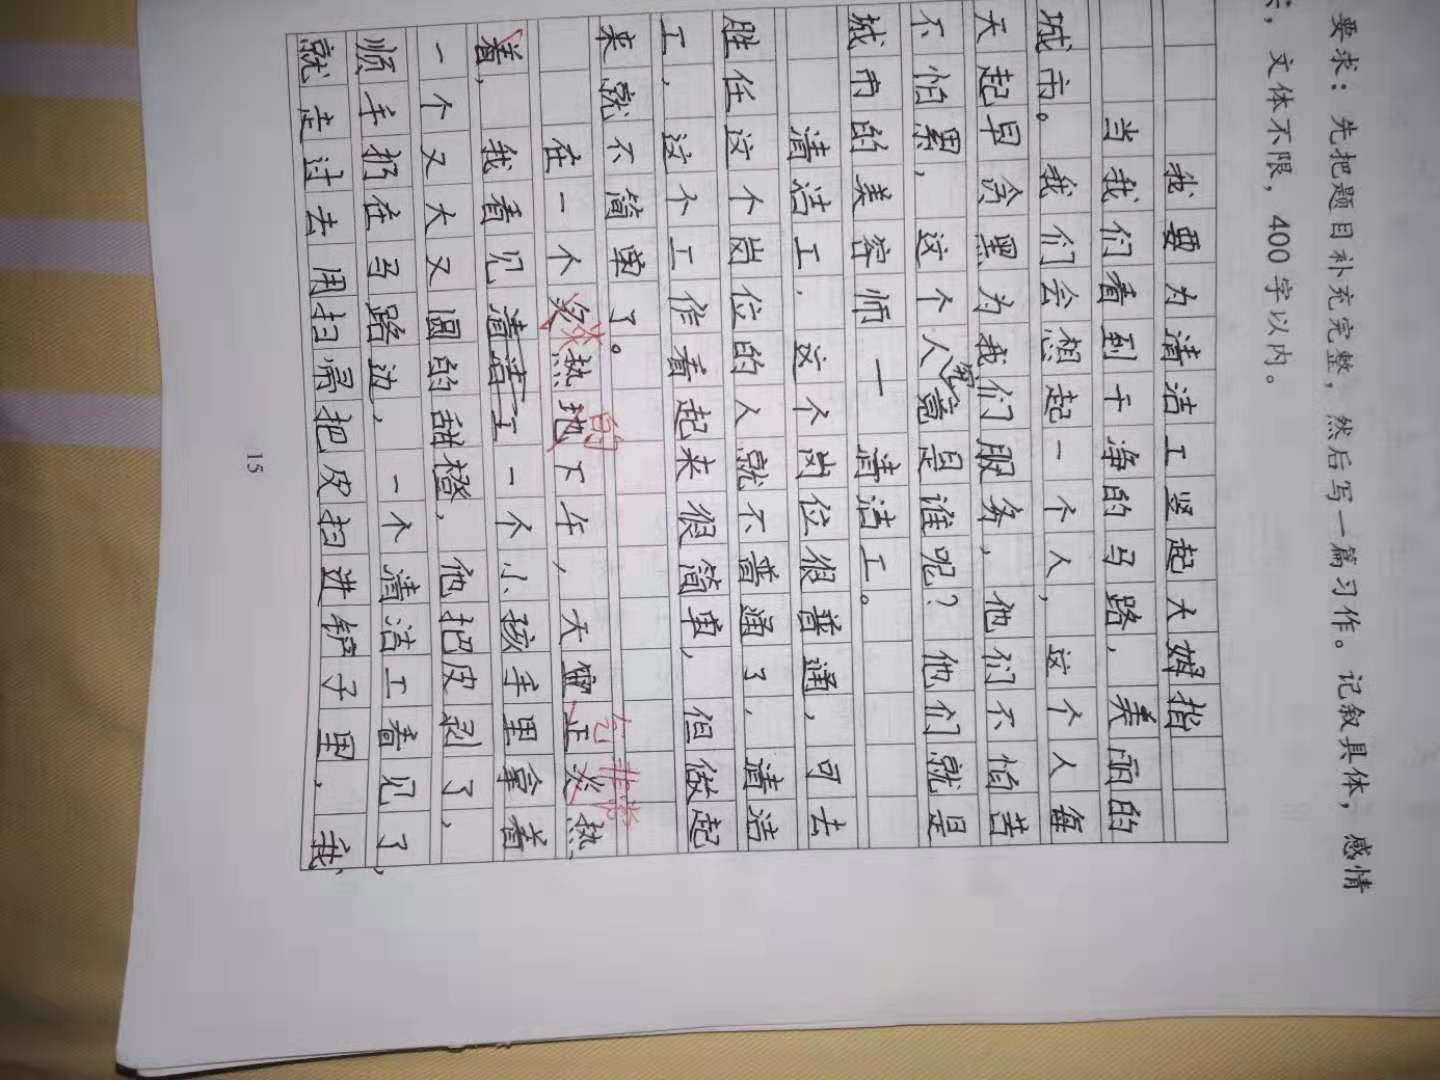 要求：先把题目补充完整，然后写一篇习作。记叙具体，感情
，文体不限，400字以内。
我要为清洁工竖起大姆指
当我们看到干净的马路，美丽的
城市。我们会想起一个人，这个人每
天起早贪黑为我们服务，他们不怕苦
不怕累，这个人究竟是谁呢？他们就是
城市的美容师一清洁工。
清洁工，这个岗位很普通，可去
胜任这个岗位的人就不普通了，清洁
工，这个工作看起来很简单，但做起
来就不简单了。
在一个炎热的下午，天气非常炎热
着，我看见清洁工一个小孩手里拿着
一个又大又圆的甜橙，他把皮剥了，
顺手扔在马路边，一个清洁工看见了，
就走过去用扫帚把皮扫进铲子里，我
15